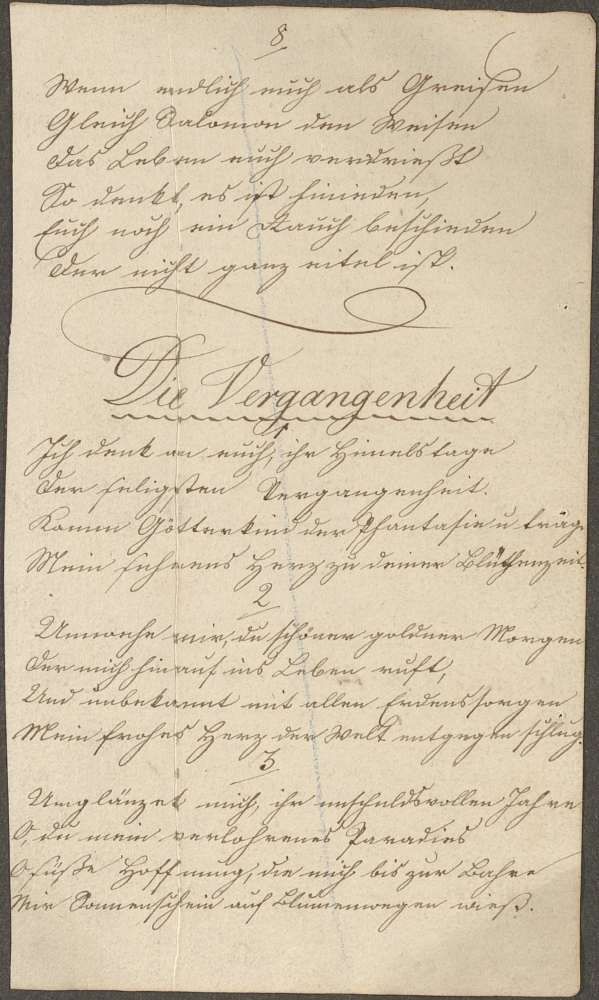 8
Wenn endlich euch als Greisen
Gleich Salomon den Weisen
Das Leben euch verdrießt
So denkt, es ist hinieden,
Euch noch ein Rauch beschieden
Der nicht ganz eitel ist.
Die Vergangenheit
1
Ich denk an euch, ihr Himelstage
Der seligsten Vergangenheit.
Komm Götterkind der Phantasie u trage
Mein sehnens Herz zu deiner Blüthenzeit.
2
Umwehe mir, du schöner goldner Morgen
Der mich hinauf ins Leben ruft,
Und unbekannt mit allen Erdenssorgen
Mein frohes Herz der Welt entgegen schlug.
3
Umglänzet mich, ihr unschuldsvollen Jahre
O, du mein verlohrenes Paradies
O süße Hoffnung, die mich bis zur Bahre
Mir Sonnenschein auf Blumenwegen wieß.